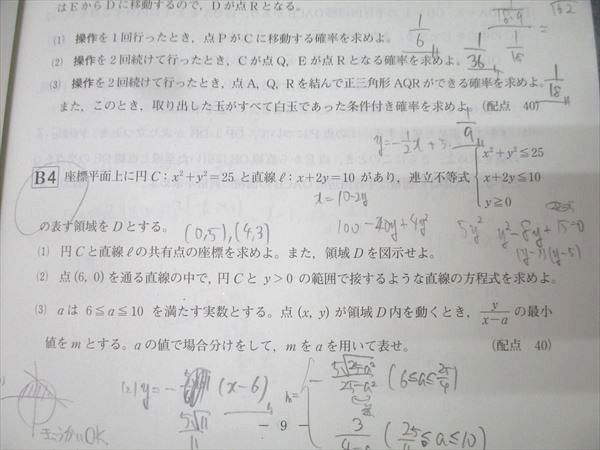 はEからDに移動するので,Dが点Rとなる。
(1) 操作を1回行ったとき,点PがCに移動する確率を求めよ。 1/6
(2) 操作を2回続けて行ったとき,Cが点Q,Eが点Rとなる確率を求めよ。 1/36 1/18
(3) 操作を2回続けて行ったとき,点A,Q,Rを結んで正三角形AQRができる確率を求めよ。 1/18
また,このとき,取り出した玉がすべて白玉であった条件付き確率を求めよ。 (配点 40)
4/9
y=-1/2x+5
B4 座標平面上に円C:x²+y²=25と直線ℓ:x+2y=10があり,連立不等式 { x²+y²≦25
x+2y≦10
y≧0
x=10-2y
の表す領域をDとする。 (0,5),(4,3) 100-40y+4y² 5y² y²-8y+15=0
(y-3)(y-5)
(1) 円Cと直線ℓの共有点の座標を求めよ。また,領域Dを図示せよ。
(2) 点(6,0)を通る直線の中で,円Cとy>0の範囲で接するような直線の方程式を求めよ。
(3) aは6≦a≦10を満たす実数とする。点(x,y)が領域D内を動くとき,y/(x-a)の最小
値をmとする。aの値で場合分けをして,mをaを用いて表せ。 (配点 40)
(2) y=- (x-6)
5√11
11
m= { (6≦a≦25/4)
3/(4-a) (25/4≦a≦10)
きょうかいOK
- 9 -